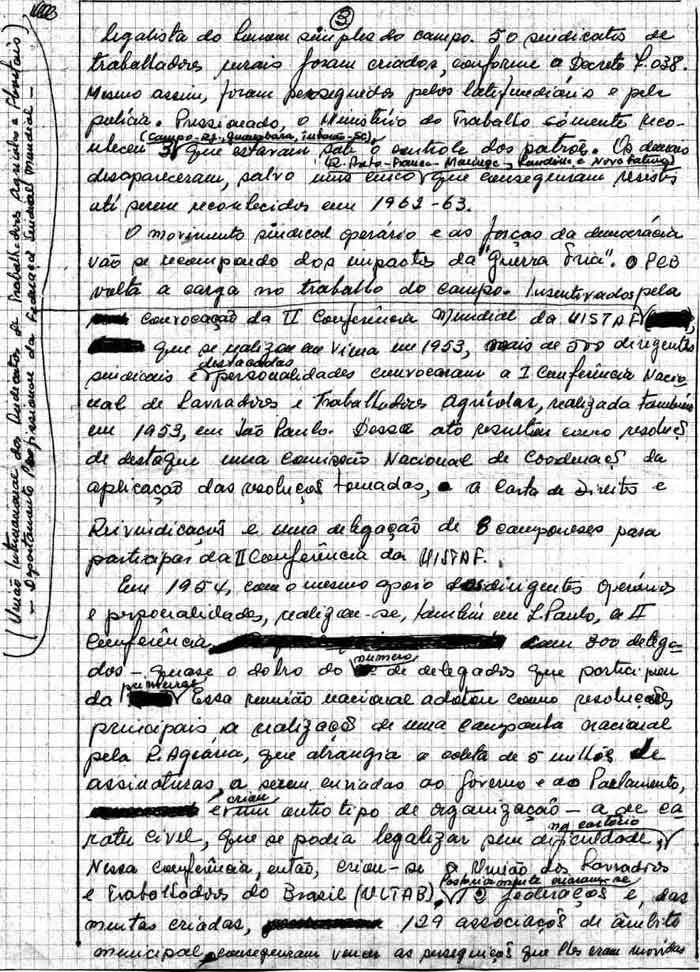 3
legalista do homem simples do campo. 50 sindicatos de
trabalhadores rurais foram criados, conforme o Decreto 7.038.
Mesmo assim, foram perseguidos pelos latifundiários e pela
polícia. Pressionado, o Ministério do Trabalho sòmente reco-
(Campo-RJ, Guanabara, Tubarão-SC)
nheceu 3, que estavam sob o controle dos patrões. Os demais
(R. Preto-Franca- Maringá-, Londrina e Nova Fátima)
desapareceram, salvo uns cinco que conseguiram resistir
até serem reconhecidos em 1962-63.
O movimento sindical operário e as forças da democrácia
vão se recompondo dos impactos da "Guerra Fria". O PCB
volta a carga no trabalho do campo. Insentivados pela
convocação da II Conferência Mundial da UISTAF
que se realizou em Viena em 1953, mais de 500 dirigentes
destacadas
sindicais e personalidades convocaram a I Conferência Nacio-
nal de Lavradores e Trabalhadores Agrícolas, realizada também
em 1953, em São Paulo. Desse ato resultou como resoluçõ
de destaque uma Comissão Nacional de Coodenaçõ da
aplicação das resoluções tomadas, a Carta de Direitos e
Reivindicações e uma delegação de 8 camponeses para
participar da II Conferência da UISTAF.
Em 1954, com o mesmo apoio dos dirigentes operários
e personalidades, realizou-se, também em S. Paulo, a II
Conferência, com 300 delega-
número
dos - quase o dobro do de delegados que participou
primeira
da Essa reunião nacional adotou como resoluções
principais, a realização de uma campanha nacional
pela R. Agrária, que abrangia a coleta de 5 milhões de
assinaturas, a serem enviadas ao Governo e ao Parlamento,
criou
e um outro tipo de organização - a de ca
no cartório
rater civil, que se podia legalizar sem dificuldade,
Nessa conferência, então, criou-se a União dos Lavradores
posteriormente criaram-se
e Trabalhadores do Brasil (ULTAB). 12 federações e, das
muitas criadas, 129 associações de âmbito
municipal, conseguiram vencer as perseguições que lhes eram movidas
(União Internacional dos Sindicatos de Trabalhadores Agrícolas e Florestais)
- Departamento Profissional da Federação Sindical Mundial -